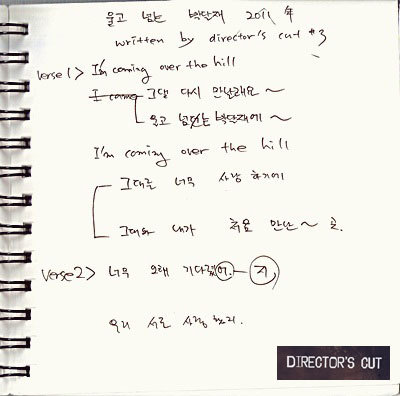 울고 넘는 박달재 2011 年
written by director's cut #3
verse 1 > I'm coming over the hill
I came 그댈 다시 만날래요 ~
울고 넘는 박달재에 ~
I'm coming over the hill
그대를 너무 사랑 하기에
그대와 내가 처음 만난 ~ 곳.
verse 2 > 너무 오래 기다렸어. 지,
우리 서로 사랑 했지.
DIRECTOR'S CUT